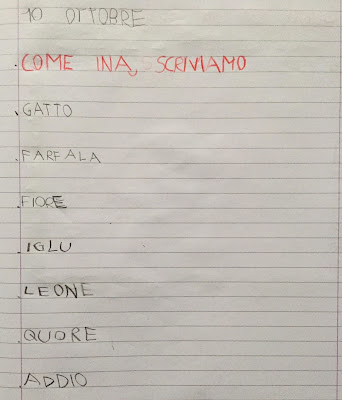 10 OTTOBRE
COME INA, SCRIVIAMO
GATTO
FARFALA
FIORE
IGLU
LEONE
QUORE
ADDIO